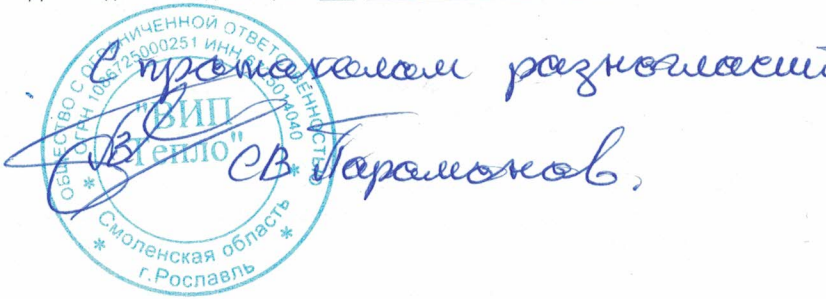 С протоколом разногласий
СВ Парамонов.
ОБЩЕСТВО С ОГРАНИЧЕННОЙ ОТВЕТСТВЕННОСТЬЮ
ОГРН 1086725000251 ИНН
"ВИП
Тепло"
Смоленская область
г.Рославль